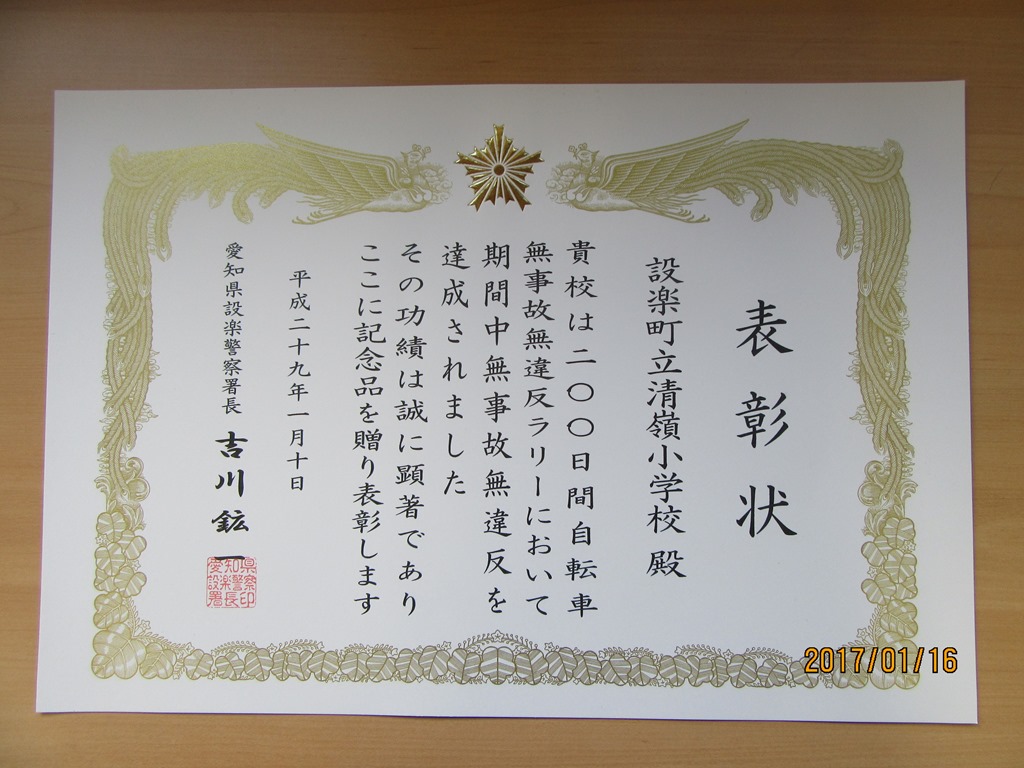 表彰状
設楽町立清嶺小学校 殿
貴校は二〇〇日間自転車
無事故無違反ラリーにおいて
期間中無事故無違反を
達成されました
その功績は誠に顕著であり
ここに記念品を贈り表彰します
平成二十九年一月十日
愛知県設楽警察署長 吉川鉱一
愛知県設楽警察署長印
2017/01/16